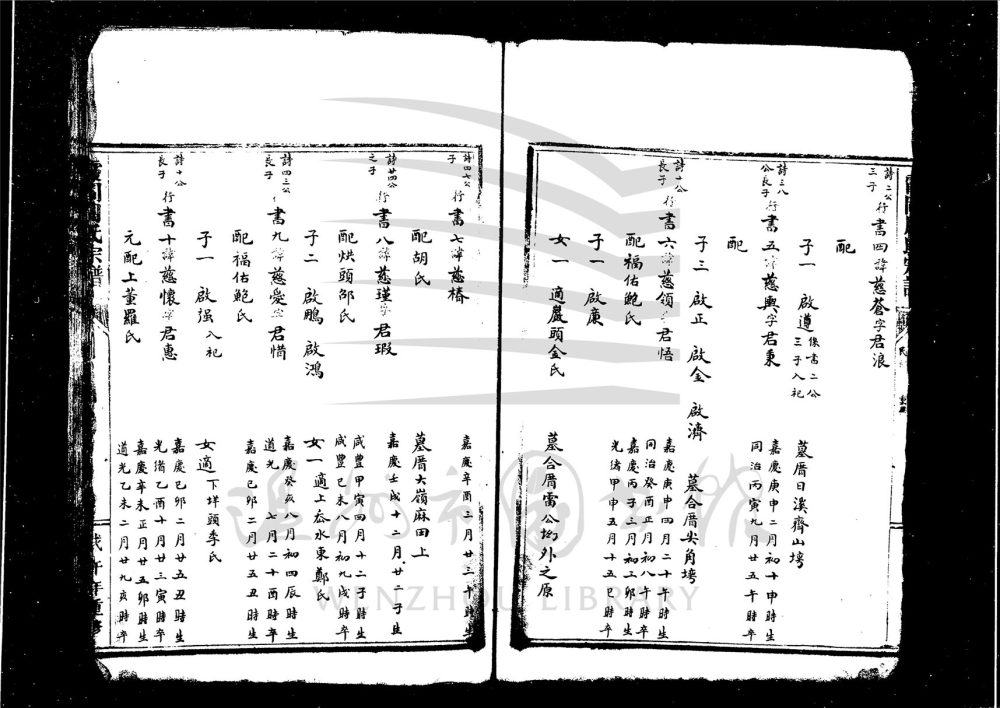 詩二公三子
行書四諱慈蒼字君浪
配
子一 啟遵 係書二公三子入祀
墓厝日溪齊山塆
詩三八公長子
行書五諱慈輿字君東
嘉慶庚申二月初十申時生
同治丙寅九月廿五午時卒
配
子三 啟正 啟金 啟濟
墓合厝尖角塆
詩十公長子
行書六諱慈領字君悟
嘉慶庚申四月二十午時生
同治癸酉正月初八午時卒
配福佑鮑氏
嘉慶丙子三月初三卯時生
光緒甲申五月十五巳時卒
子一 啟廉
女一 適巖頭金氏
墓合厝雷公坳外之原
詩四七公子
行書七諱慈椿
嘉慶辛酉三月廿三午時生
配胡氏
墓厝大嶺麻田上
詩廿四公之子
行書八諱慈瑾字君瑕
嘉慶壬戌十二月廿二子生
咸豐甲寅四月十二子時生
配烘頭邵氏
咸豐己未八月初九戌時卒
子二 啟鵬 啟鴻
女一 適上岙水東鄭氏
詩四三公長子
行書九諱慈愛字君惜
嘉慶癸亥八月初四辰時生
道光 七月二十酉時卒
配福佑鮑氏
嘉慶己卯二月廿五丑時生
子一 啟强入祀
女適下垟頭季氏
詩十公長子
行書十諱慈懷字君惠
嘉慶己卯二月廿五丑時生
光緒乙酉十月廿三寅時卒
元配上董羅氏
嘉慶辛未正月廿五卯時生
道光乙未二月廿九亥時卒
氏宗譜
年重修
WENZHOU LIBRARY